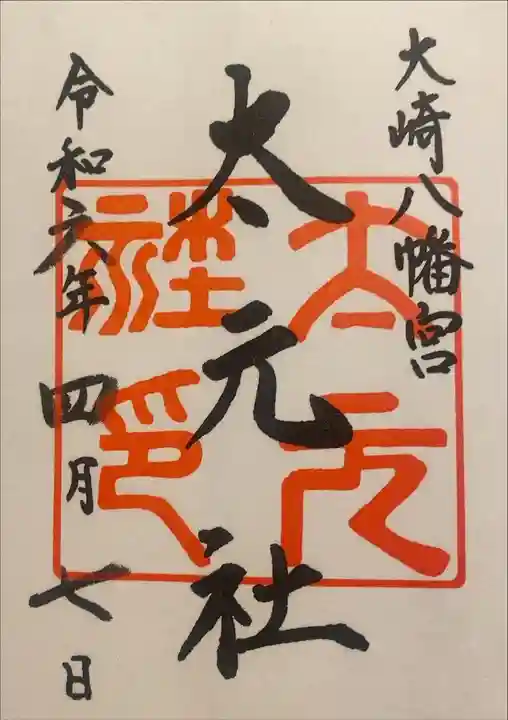 大崎八幡宮
太元社
令和六年四月七日
太元社印